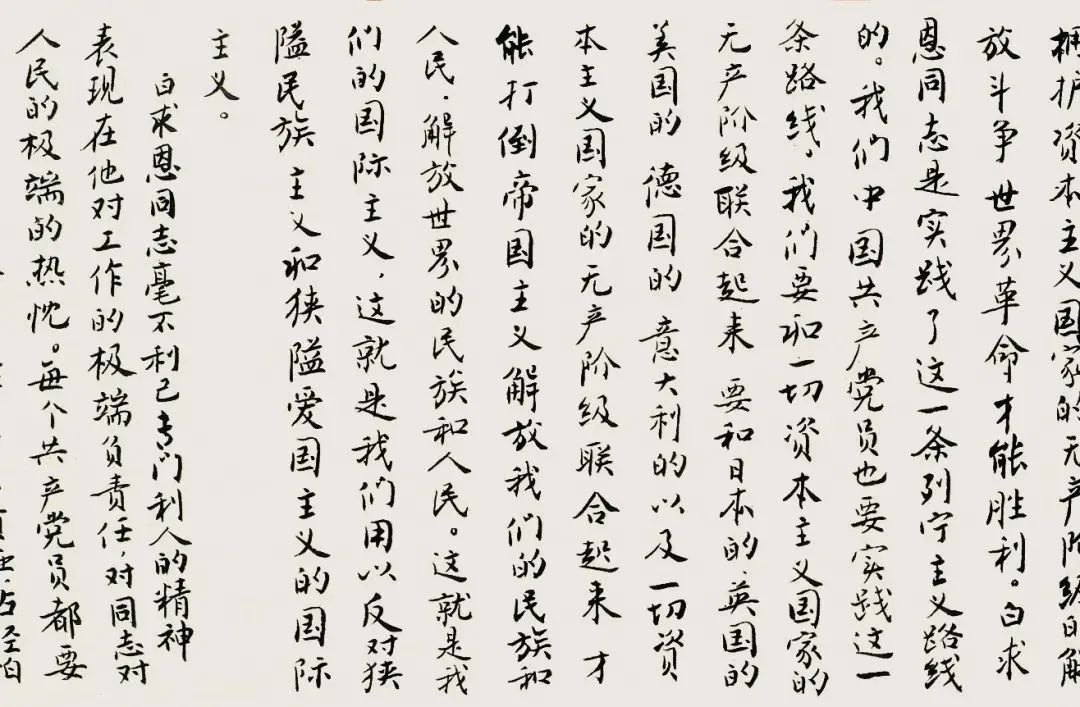 拥护资本主义国家的无产阶级的解
放斗争世界革命才能胜利。白求
恩同志是实践了这一条列宁主义路线
的。我们中国共产党员也要实践这一
条路线。我们要和一切资本主义国家的
无产阶级联合起来 要和日本的、英国的
美国的 德国的 意大利的以及一切资
本主义国家的无产阶级联合起来 才
能打倒帝国主义解放我们的民族和
人民、解放世界的民族和人民。这就是我
们的国际主义,这就是我们用以反对狭
隘民族主义和狭隘爱国主义的国际
主义。
白求恩同志毫不利己专门利人的精神
表现在他对工作的极端负责任,对同志对
人民的极端的热忱。每个共产党员都要